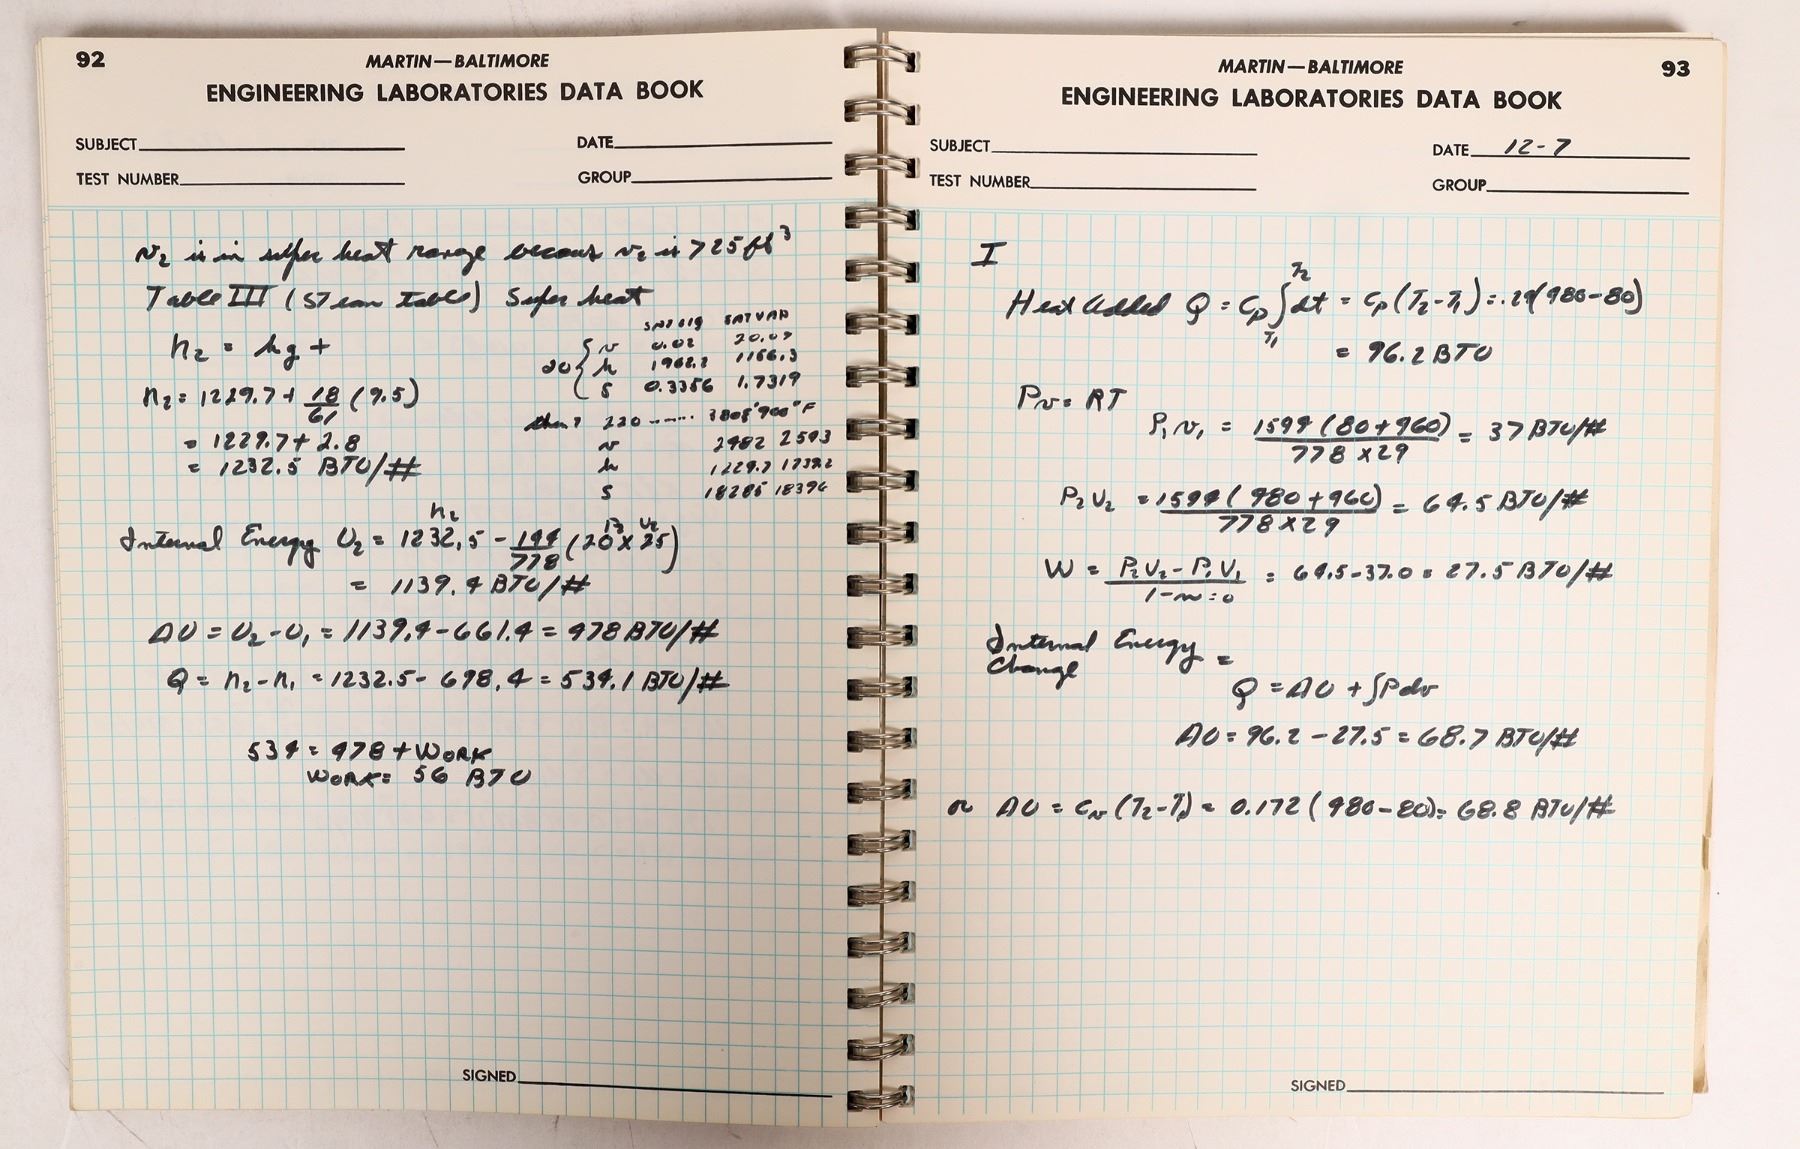 92
MARTIN—BALTIMORE
ENGINEERING LABORATORIES DATA BOOK
SUBJECT
DATE
TEST NUMBER
GROUP
v2 is in super heat range becaus v2 is > 25 ft³
Table III (STeam tables) Super heat
SAT VAP
h2 = hg +
20 { v 0.02 20.09
h 1156.3
s 0.3356 1.7319
h2 = 1229.7 + 18/61 (9.5)
= 1229.7 + 2.8
= 1232.5 BTU/#
220 ......
v 2482 2543
h 1229.7
s 18285 18396
h2
P2 V2
Internal Energy U2 = 1232.5 - 144/778 (20 x 25)
= 1139.4 BTU/#
ΔU = U2 - U1 = 1139.4 - 661.4 = 478 BTU/#
Q = h2 - h1 = 1232.5 - 698.4 = 534.1 BTU/#
534 = 478 + WORK
WORK = 56 BTU
SIGNED
93
MARTIN—BALTIMORE
ENGINEERING LABORATORIES DATA BOOK
SUBJECT
DATE 12-7
TEST NUMBER
GROUP
I
Heat Added Q = Cp ∫T1T2 dt = Cp (T2 - T1) = .24 (480 - 80)
= 96.2 BTU
Pv = RT
P1 v1 = 1544 (80 + 460) / 778 x 29 = 37 BTU/#
P2 V2 = 1544 (480 + 460) / 778 x 29 = 64.5 BTU/#
W = P2 V2 - P1 V1 / 1 - n = 0 = 64.5 - 37.0 = 27.5 BTU/#
Internal Energy
Change =
Q = ΔU + ∫Pdv
ΔU = 96.2 - 27.5 = 68.7 BTU/#
or ΔU = Cv (T2 - T1) = 0.172 (480 - 80) = 68.8 BTU/#
SIGNED